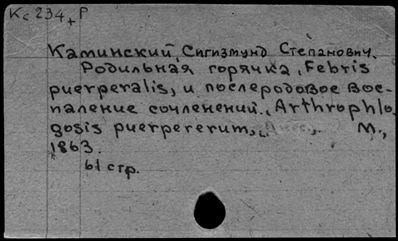 Кс 234 + Р
Каминский, Сигизмунд Степанович.
Родильная горячка, Febris
puerperalis, и послеродовое вос-
паление сочленений. Arthrophlo-
gosis puerpererum, М.,
1863.
61 стр.